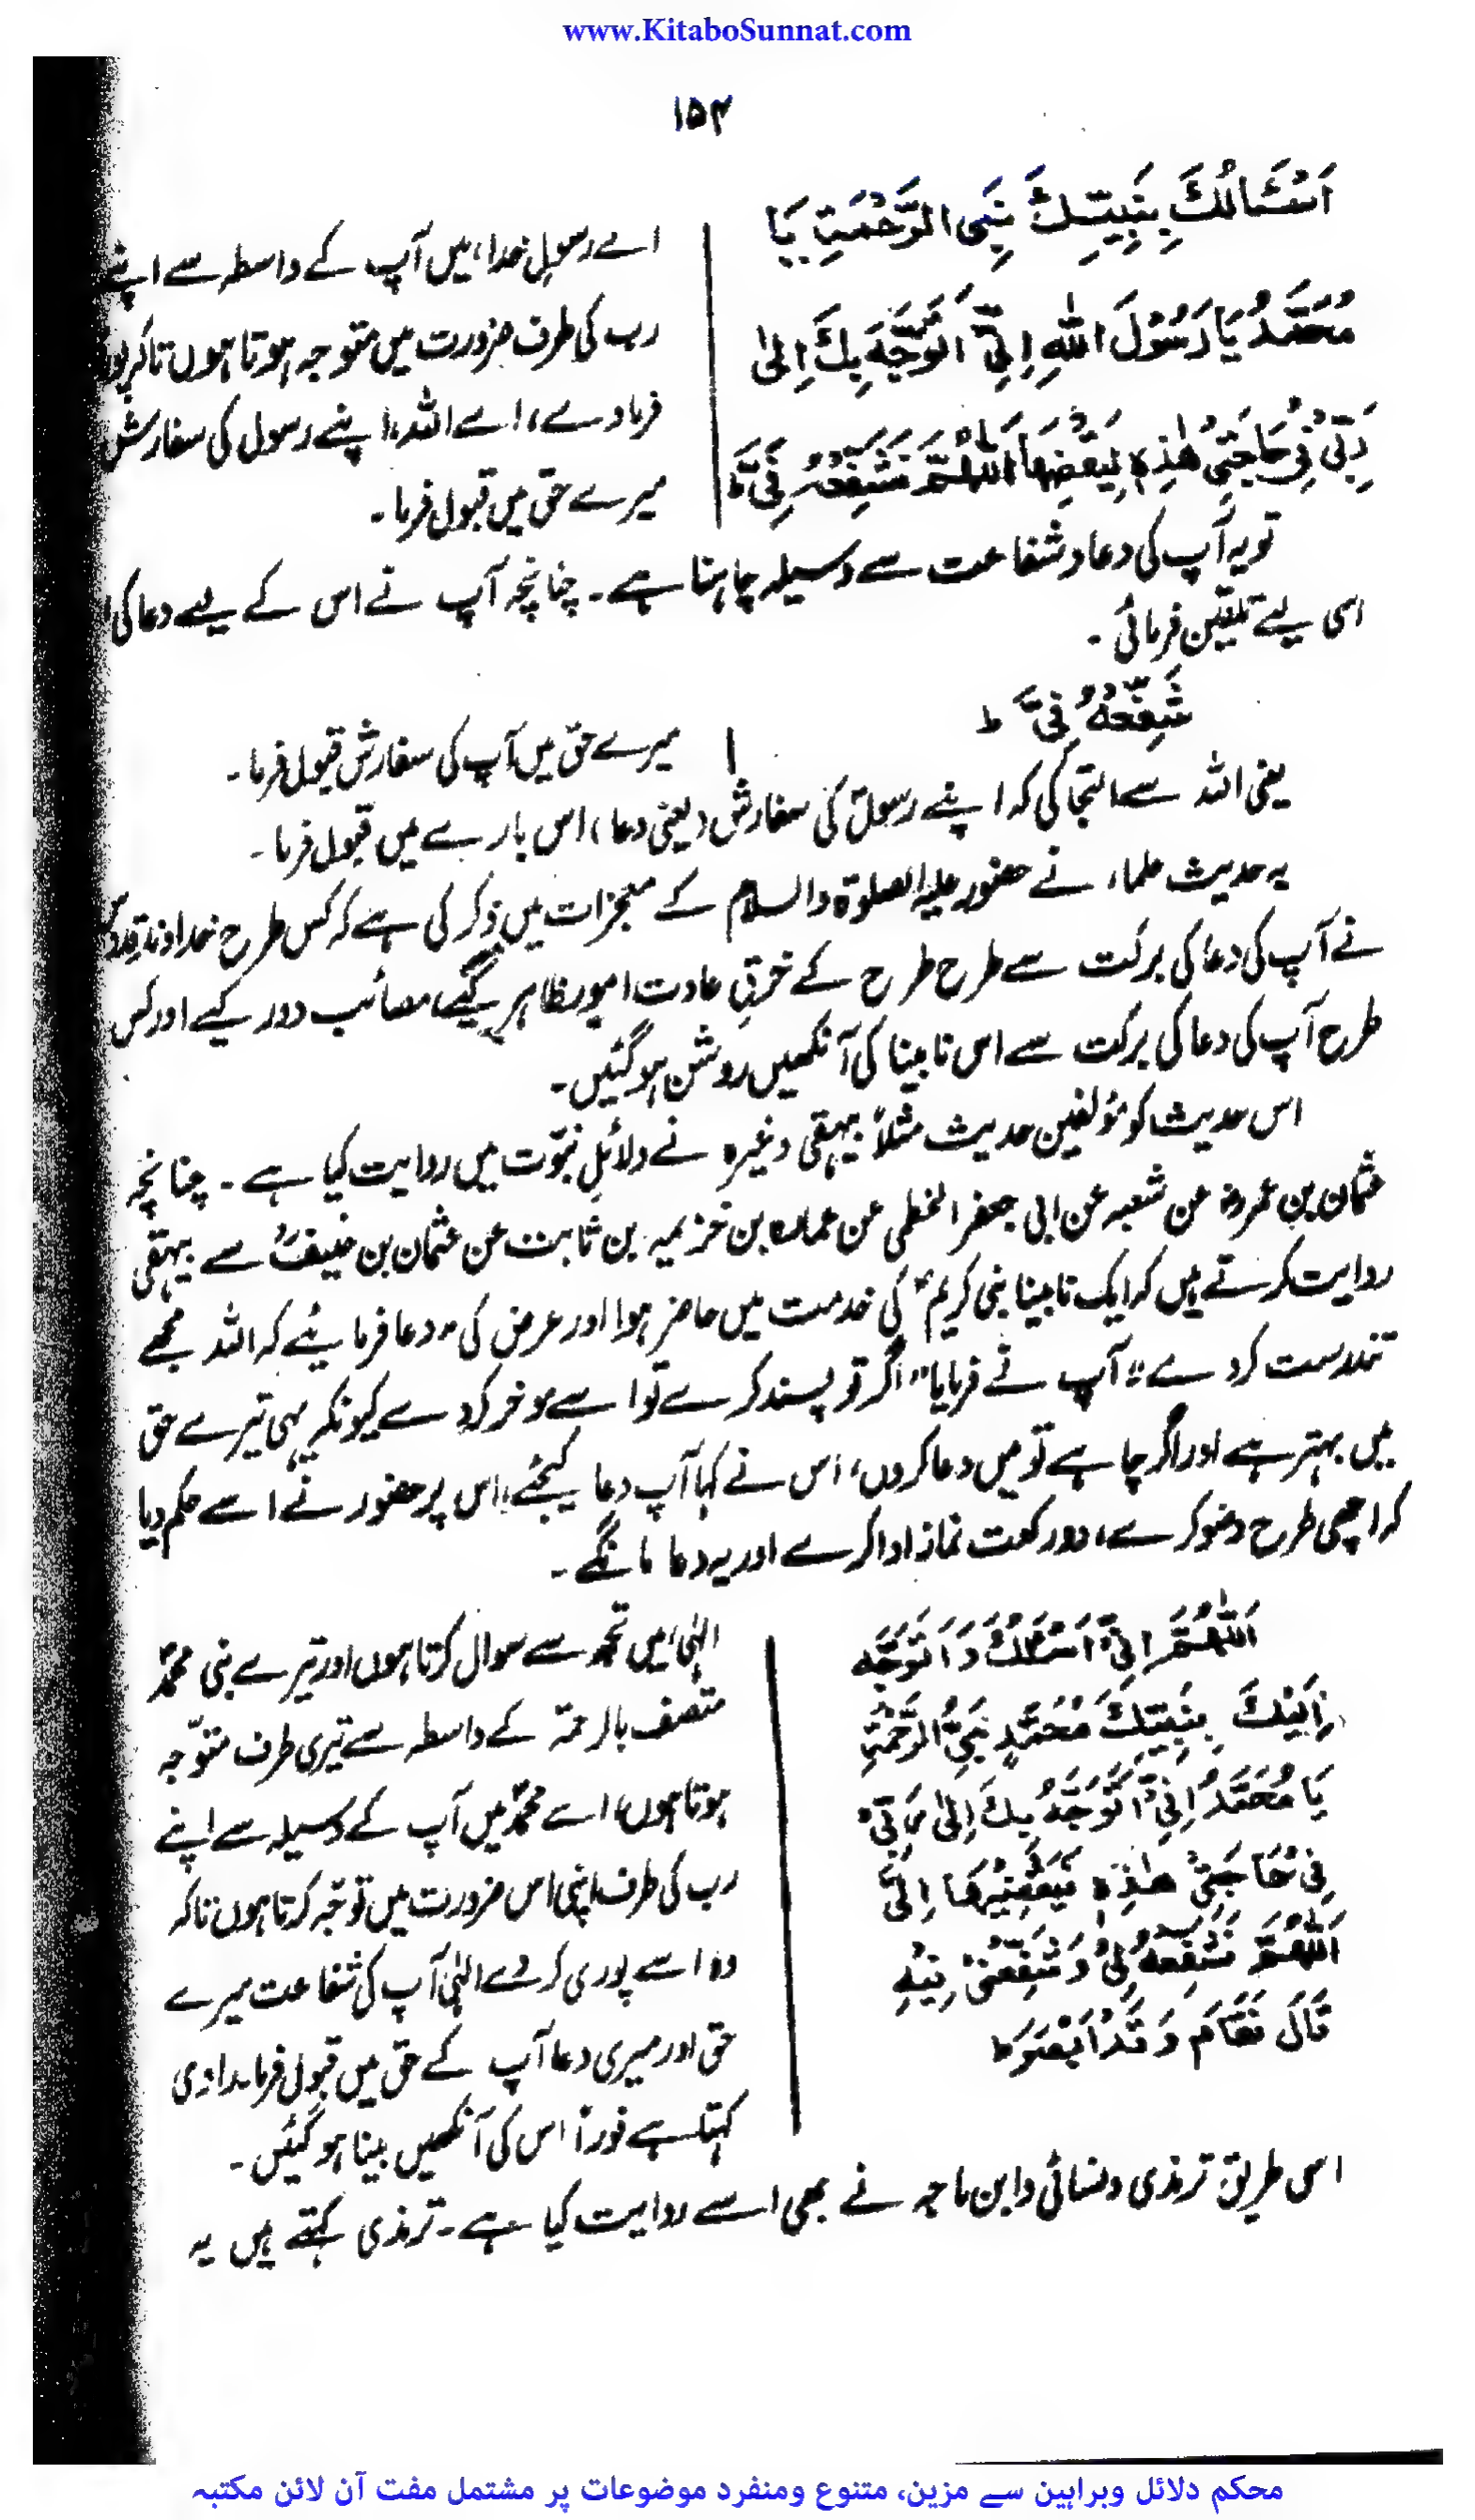 www.KitaboSunnat.com
۱۵۴
اَسْئَالُكَ بِنَبِيِّكَ نَبِیِّ الرَّحْمَةِ يَا
مُحَمَّدُ يَا رَسُوْلَ اللهِ اِنِّیْ اَتَوَجَّهُ بِكَ اِلٰی
رَبِّیْ فِیْ حَاجَتِیْ هٰذِهٖ لِيَقْضِهَا اَللّٰهُمَّ فَشَفِّعْهُ فِیَّ ط
اے رسولِ خدا، میں آپ کے واسطہ سے اپنے
رب کی طرف ضرورت میں متوجہ ہوتا ہوں تاکہ
فرما دے، اے اللہ، اپنے رسول کی سفارش
میرے حق میں قبول فرما۔
تو یہ آپ کی دعا و شفاعت سے وسیلہ چاہنا ہے۔ چنانچہ آپ نے اس کے لیے دعا کی
اسی لیے تلقین فرمائی۔
شَفِّعْهُ فِیَّ ط
میرے حق میں آپ کی سفارش قبول فرما۔
یعنی اللہ سے التجا کی کہ اپنے رسولؐ کی سفارش (یعنی دعا) اس بارے میں قبول فرما۔
یہ حدیث علماء نے حضور علیہ الصلوٰۃ والسلام کے معجزات میں ذکر کی ہے کہ کس طرح خداوند
نے آپ کی دعا کی برکت سے طرح طرح کے خرقِ عادت امور ظاہر کیے، مصائب دور کیے اور کس
طرح آپ کی دعا کی برکت سے اس نابینا کی آنکھیں روشن ہو گئیں۔
اس حدیث کو مؤلفین حدیث مثلاً بیہقی وغیرہ نے دلائلِ نبوّت میں روایت کیا ہے۔ چنانچہ
عثمان بن عمروؓ عن شعبہ عن ابی جعفر الخطمی عن عمارہ بن خزیمہ بن ثابت عن عثمان بن حنیفؓ سے بیہقی
روایت کرتے ہیں کہ ایک نابینا نبی کریمؐ کی خدمت میں حاضر ہوا اور عرض کی "دعا فرمایئے کہ اللہ مجھے
تندرست کر دے" آپ نے فرمایا "اگر تو پسند کرے تو اسے موخر کر دے کیونکہ یہی تیرے حق
میں بہتر ہے اور اگر چاہے تو میں دعا کروں، اس نے کہا آپ دعا کیجئے، اس پر حضور نے اسے حکم دیا
کہ اچھی طرح وضو کرے، دو رکعت نماز ادا کرے اور یہ دعا مانگے۔
اَللّٰهُمَّ اِنِّیْ اَسْئَلُكَ وَ اَتَوَجَّهُ
اِلَيْكَ بِنَبِيِّكَ مُحَمَّدٍ نَبِیِّ الرَّحْمَةِ
يَا مُحَمَّدُ اِنِّیْ اَتَوَجَّهُ بِكَ اِلٰی رَبِّیْ
فِیْ حَاجَتِیْ هٰذِهٖ فَيَقْضِيْهَا اِلَیَّ
اَللّٰهُمَّ فَشَفِّعْهُ لِیْ وَ شَفِّعْنِیْ فِيْهِ
قَالَ فَقَامَ وَ قَدْ اَبْصَرَ ط
الٰہی میں تجھ سے سوال کرتا ہوں اور تیرے نبی محمدؐ
متصف بالرحمۃ کے واسطہ سے تیری طرف متوّجہ
ہوتا ہوں، اے محمدؐ میں آپ کے وسیلہ سے اپنے
رب کی طرف اپنی اس ضرورت میں توجّہ کرتا ہوں تاکہ
وہ اسے پوری کر دے الٰہی آپ کی شفاعت میرے
حق اور میری دعا آپ کے حق میں قبول فرما۔ راوی
کہتا ہے فوراً اس کی آنکھیں بینا ہو گئیں۔
اس طریق ترمذی و نسائی و ابن ماجہ نے بھی اسے روایت کیا ہے۔ ترمذی کہتے ہیں یہ
محکم دلائل وبراہین سے مزین، متنوع ومنفرد موضوعات پر مشتمل مفت آن لائن مکتبہ